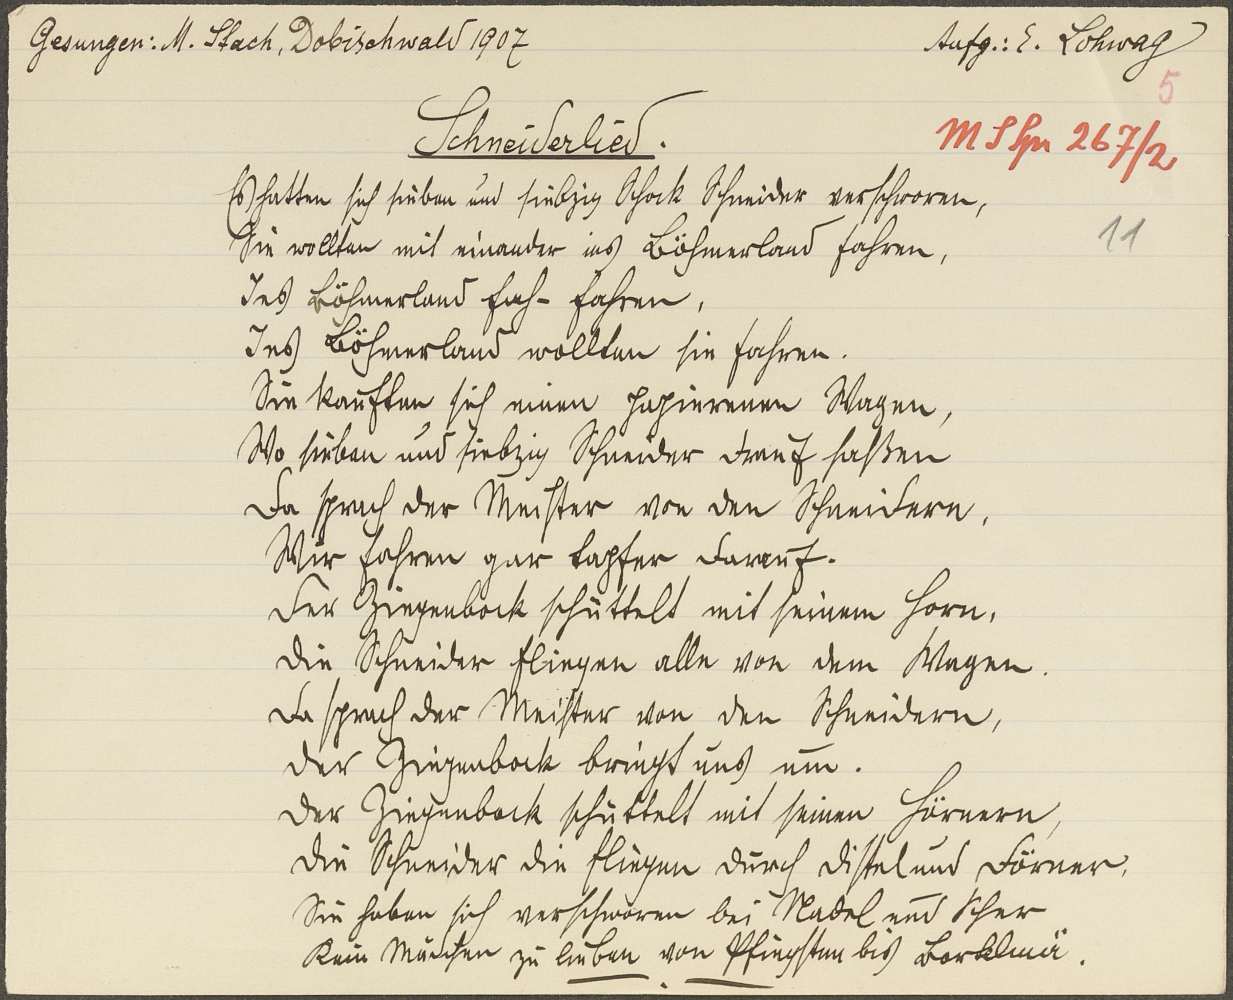 Gesungen: M. Stach, Dobischwald 1907
Aufg.: E. Lohwag
5
Schneiderlied.
267/2
Es hatten sich sieben und siebzig Schock Schneider verschworen,
11
Sie wollten mit einander ins Böhmerland fahren,
Ins Böhmerland fah- fahren,
Ins Böhmerland wollten sie fahren.
Sie kauften sich einen papierenen Wagen,
Wo sieben und siebzig Schneider drauf saßen
Da sprach der Meister von den Schneidern,
Wir fahren gar tapfer darauf.
Der Ziegenbock schüttelt mit seinem Horn,
Die Schneider fliegen alle von dem Wagen.
Da sprach der Meister von den Schneidern,
Der Ziegenbock bringt uns um.
Der Ziegenbock schüttelt mit seinen Hörnern,
Die Schneider die fliegen durch Distel und Dörner,
Sie haben sich verschworen bei Nadel und Scher
Kein Mädchen zu lieben von Pfingsten bis